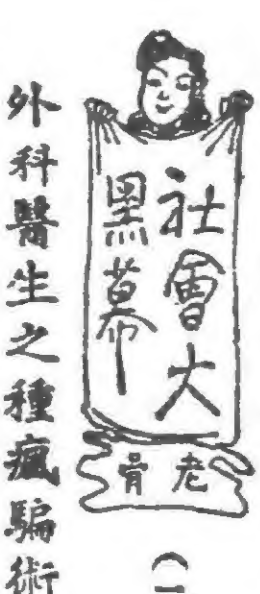 社會大
黑幕
老骨
（一
外科醫生之種瘋騙術